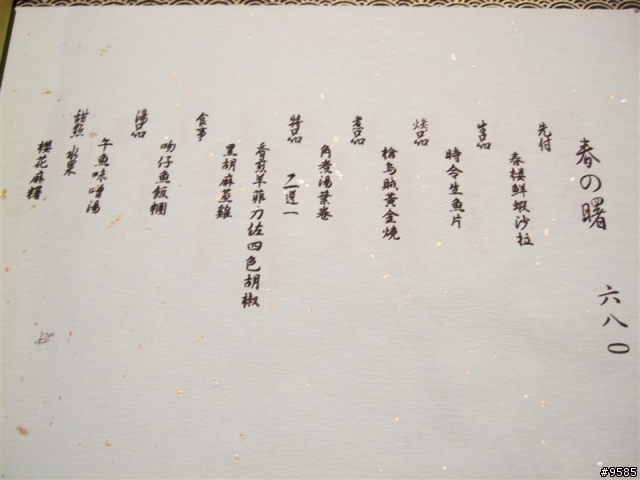 春の曙 六八〇
先付
春樱鮮蝦沙拉
生品
時令生魚片
燒品
槍烏賊黃金燒
煮品
角煮湯葉卷
特品 二選一
香煎羊菲力佐四色胡椒
黑胡麻蒸雞
食事
吻仔魚飯糰
湯品
午魚味噌湯
甜點 水果
櫻花麻糬
#9585